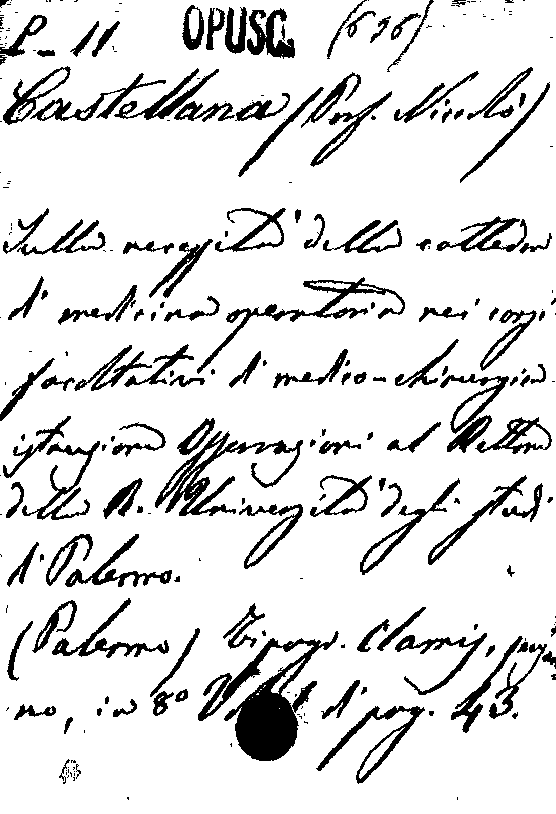 P-11 OPUSC. (696)
Castellana (Prof. Nicolò)
Sulla necessità della cattedra
di medicina operatoria nei corsi
facoltativi di medico-chirurgica
istruzione Osservazioni al Rettore
della R. Università degli studi
di Palermo.
(Palermo) Tipogr. Clamis,
no, in 8º di pag. 43.